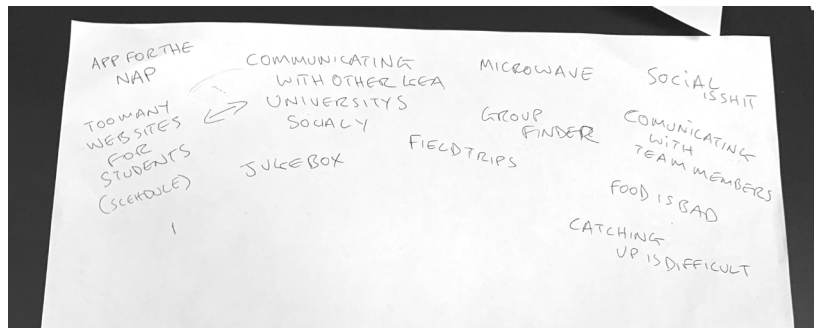 APP FOR THE
NAP
TOO MANY
WEBSITES
FOR
STUDENTS
(SCEHDULE)
COMMUNICATING
WITH OTHER KEA
UNIVERSITYS
SOCIALY
JUKEBOX
MICROWAVE
GROUP
FINDER
FIELDTRIPS
SOCIAL
IS SHIT
COMUNICATING
WITH
TEAM MEMBERS
FOOD IS BAD
CATCHING
UP IS DIFFICULT